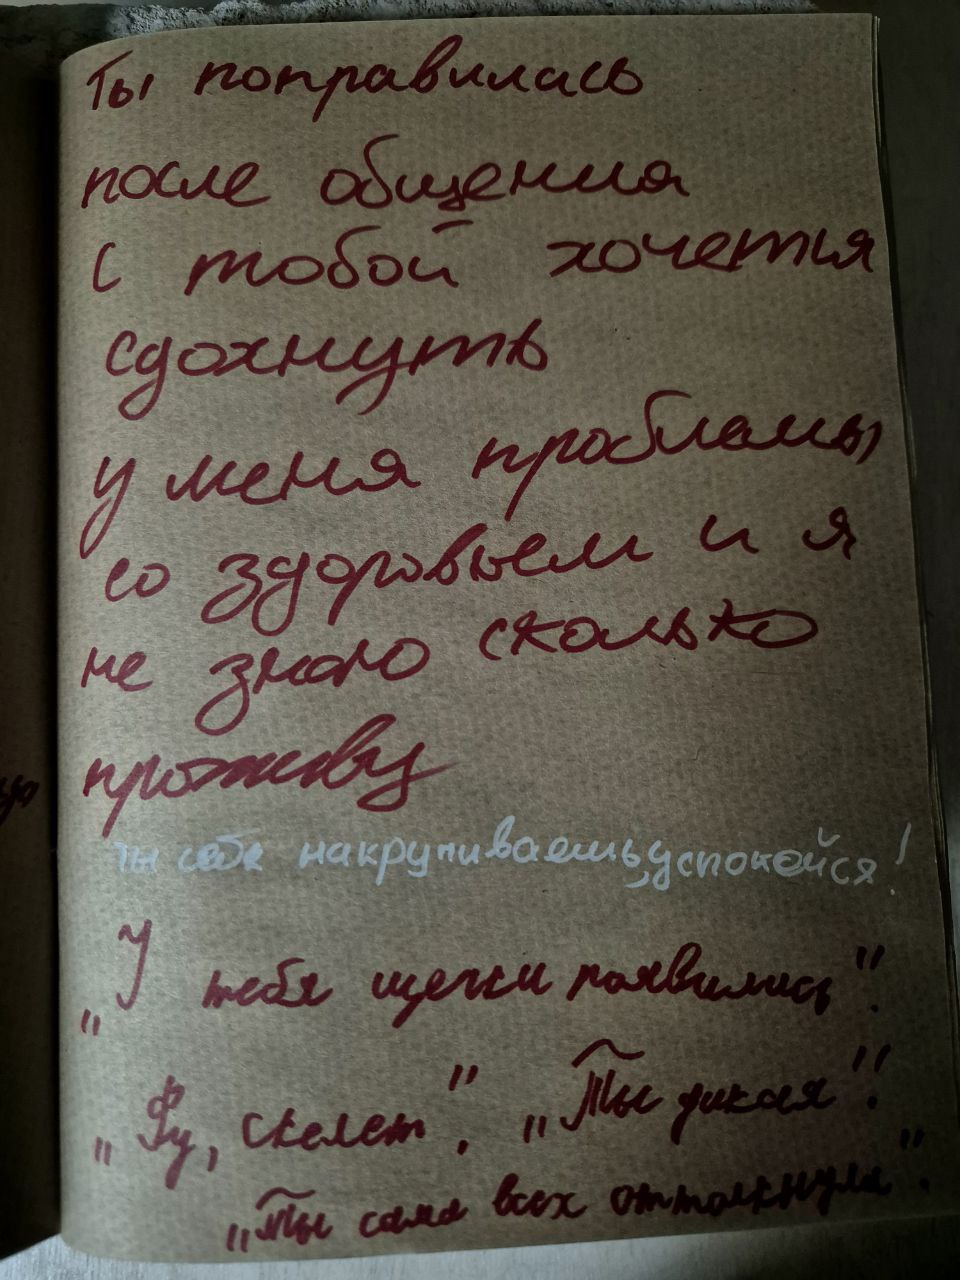 Ты поправилась
после общения
с тобой хочется
сдохнуть
у меня проблемы
со здоровьем и я
не знаю сколько
проживу
ты себя накручиваешь, успокойся!
„У тебя щечки появились".
„Фу, скелет". „Ты дикая".
„Ты сама всех оттолкнула".